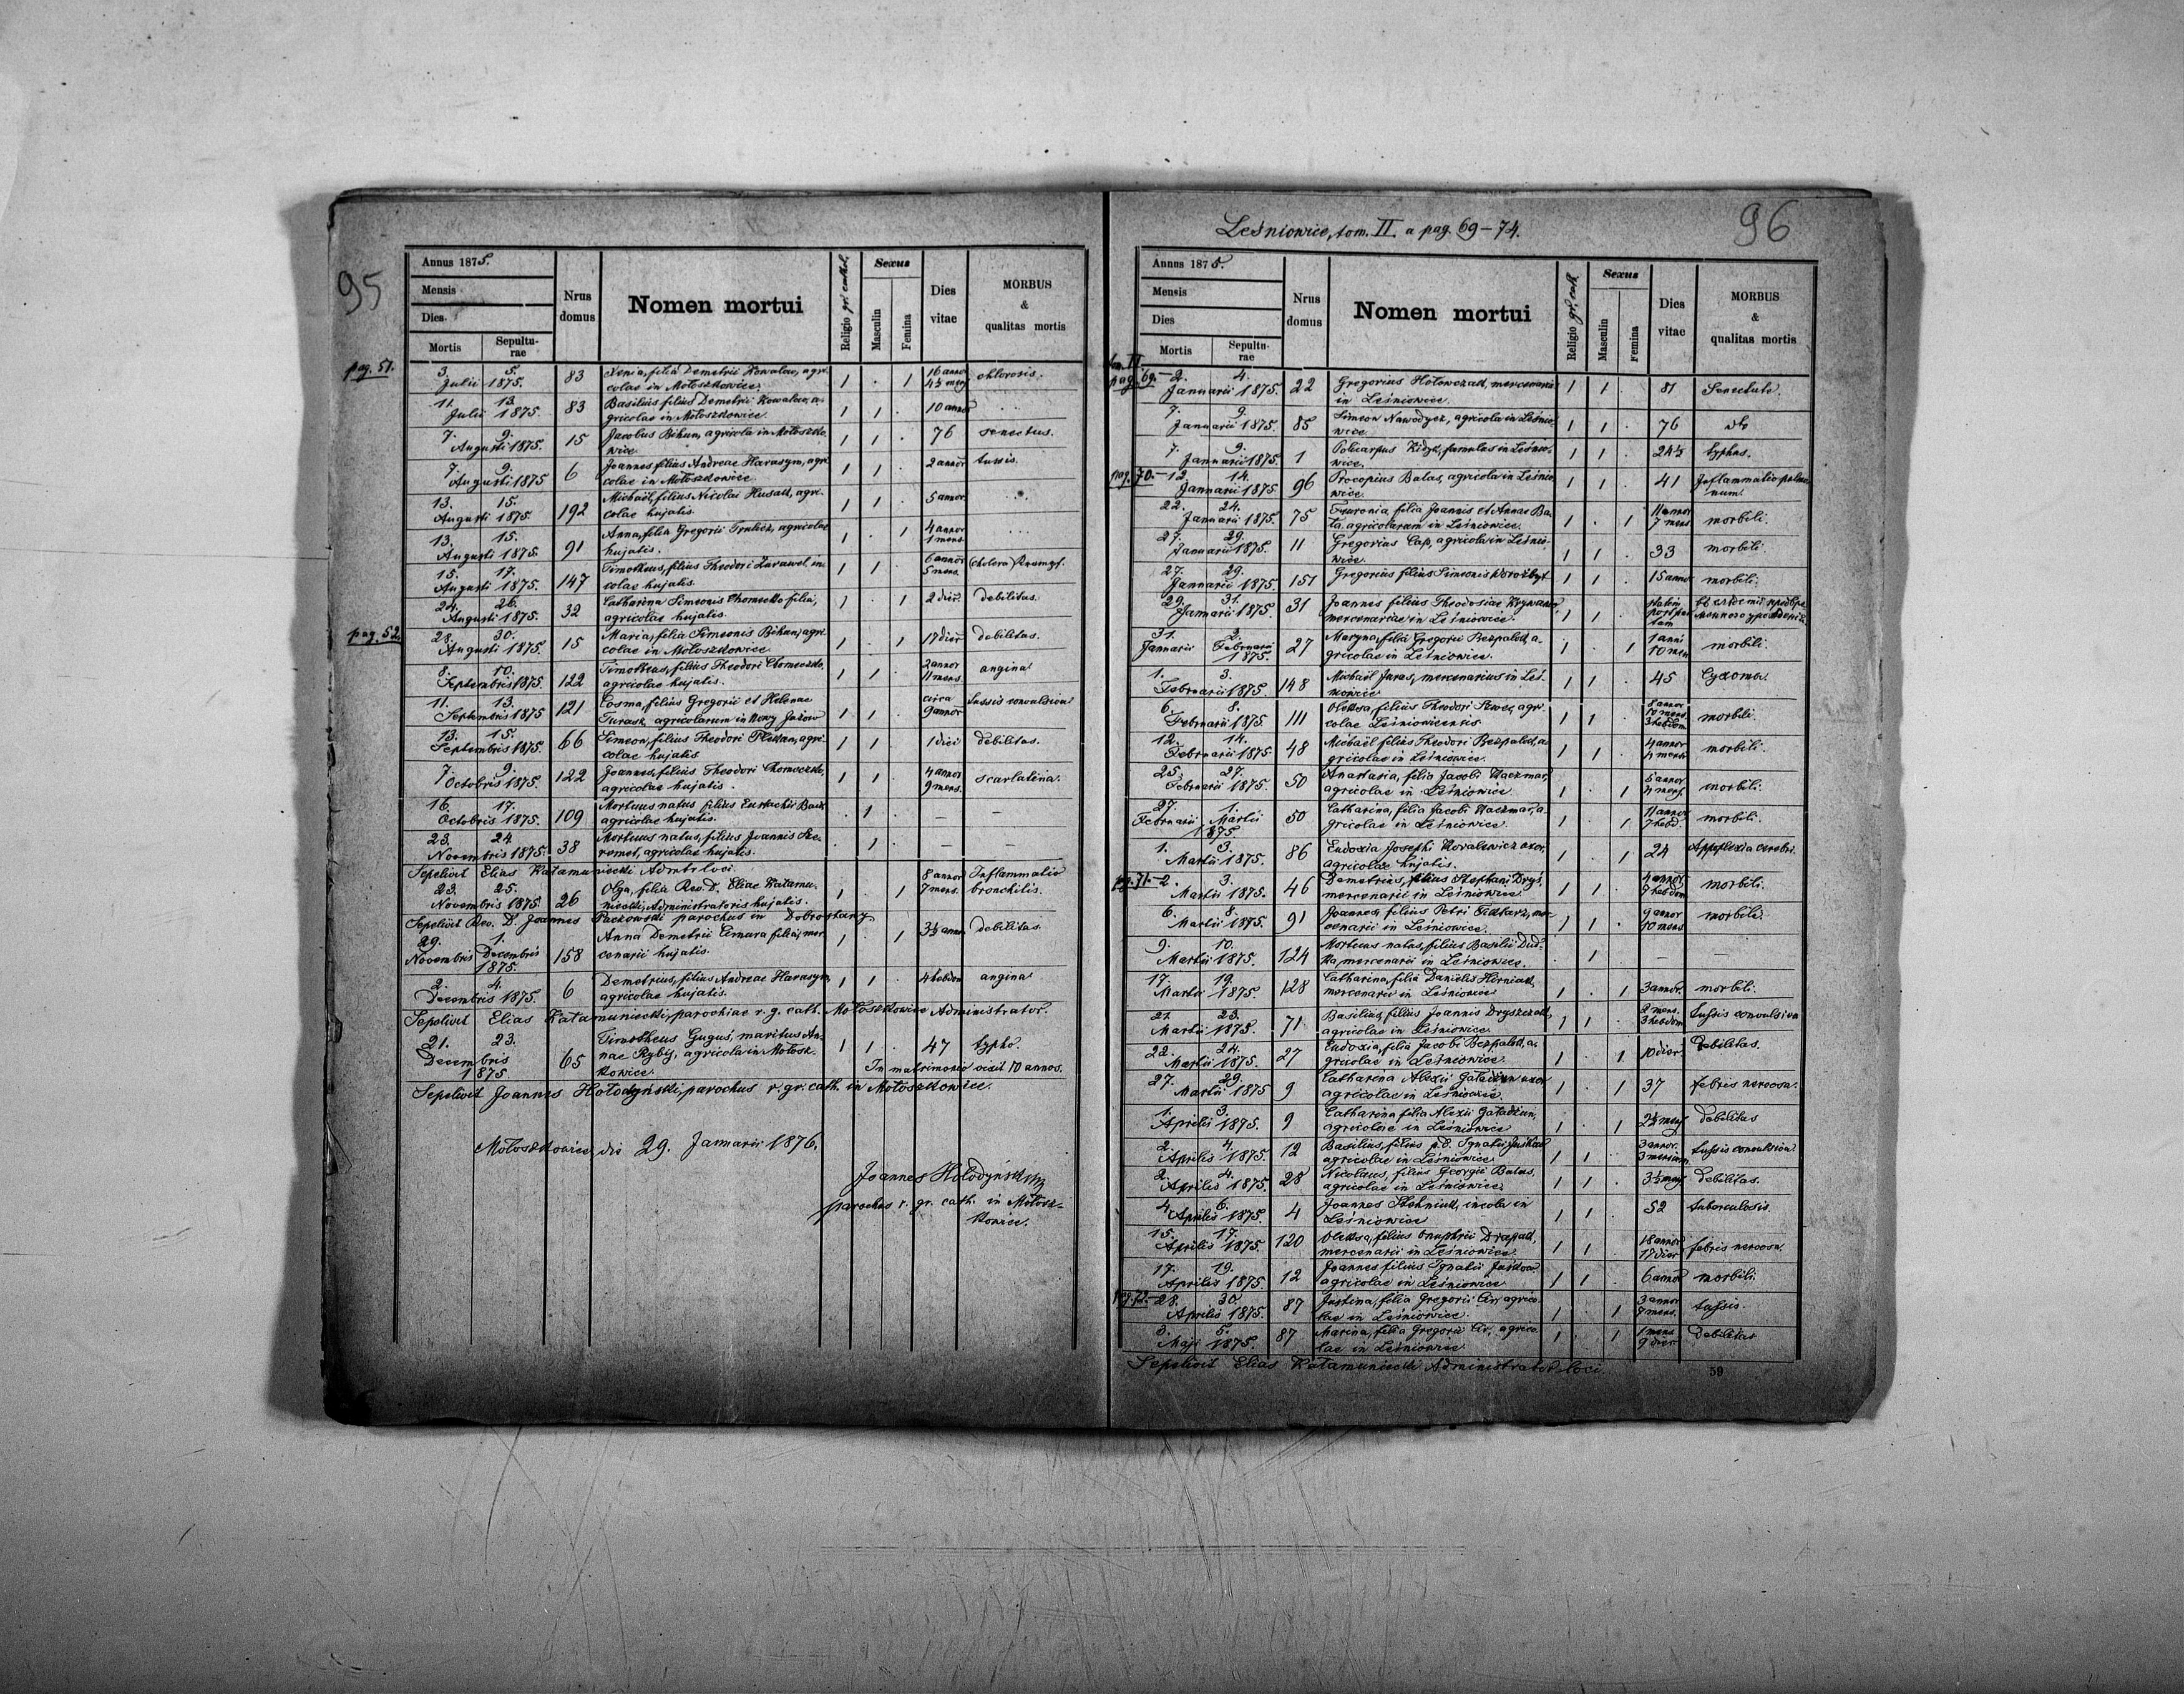 95
Annus 1875.
Mensis
Dies
Mortis
Sepulturae
Nrus domus
Nomen mortui
Religio gr. cathol.
Sexus
Masculin
Femina
Dies vitae
MORBUS & qualitas mortis
pag. 51.
3. 5.
Julii 1875. 83 Xenia, filia Demetrii Kowalow, agricolae in Mołoszkowice. 1 . 1 16 annor 4½ mens. chlorosis.
11. 13.
Julii 1875. 83 Basilius filius Demetrii Kowalow, agricolae in Mołoszkowice. 1 1 . 10 annor . .
7. 9.
Augusti 1875. 15 Jacobus Bihun, agricola in Mołoszkowice. 1 1 . 76 senectus.
7. 9.
Augusti 1875 6 Joannes filius Andreae Harasym, agricolae in Mołoszkowice. 1 1 . 2 annor tussis.
13. 15.
Augusti 1875. 192 Michaël, filius Nicolai Husak, agricolae hujatis. 1 1 . 5 annor
13. 15.
Augusti 1875. 91 Anna, filia Gregorii agricolae hujatis. 1 . 1 4 annor 1 mens. . . .
15. 17.
Augusti 1875. 147 Timotheus, filius Theodori Żurawel, incolae hujatis. 1 1 . 6 annor 5 mens. (cholera)
24. 26.
Augusti 1875. 32 Catharina Simeonis Chomeczko filia, agricolae hujatis. 1 . 1 2 dier. debilitas.
pag. 52.
28. 30.
Augusti 1875. 15 Maria, filia Simeonis Bihun, agricolae in Mołoszkowice 1 . 1 17 dier debilitas.
8. 10.
Septembris 1875. 122 Timotheus, filius Theodori Chomeczko, agricolae hujatis. 1 1 . 2 annor 11 mens. angina
11. 13.
Septembris 1875 121 Cosma, filius Gregorii et Helenae Turask, agricolarum in Nowy Jażow 1 1 . circa 9 annor tussis convulsiva
13. 15.
Septembris 1875. 66 Simeon, filius Theodori agricolae hujatis 1 1 . 1 diei debilitas.
7. 9.
Octobris 1875. 122 Joannes, filius Theodori Chomeczko, agricolae hujatis. 1 1 . 4 annor 9 mens. scarlatina.
16. 17.
Octobris 1875. 109 Mortuus natus filius Eustachii agricolae hujatis. . 1 . — —
23. 24
Novembris 1875. 38 Mortuus natus, filius Joannis Szeremet, agricolae hujatis. . 1 . — —
Sepelivit Elias Katamuniecki Admtr loci.
23. 25.
Novembris 1875. 26 Olga, filia Rev. D. Eliae Katamuniecki, Administratoris hujatis. 1 . 1 8 annor 7 mens. Inflammatio bronchitis.
Sepelivit Rev. D. Joannes Paczowski parochus in Dobrostany
29. 1.
Novembris Decembris 1875. 158 Anna Demetrii Cimura filia, mercenarii hujatis. 1 . 1 3½ annor debilitas
2. 4.
Decembris 1875. 6 Demetrius, filius Andreae Harasym, agricolae hujatis. 1 1 . 4 hebdom angina
Sepelivit Elias Katamuniecki, parochiae r. g. cath. Mołoszkowice Administrator.
21. 23.
Decembris 1875 65 Timotheus Guguś, maritus Annae Rybij, agricola in Mołoszkowice. 1 1 . 47 typho.
In matrimonio vixit 10 annos.
Sepelivit Joannes Hołodyński, parochus r. gr. cath. in Mołoszkowice.
Mołoszkowice, die 29. Januarii 1876.
Joannes Hołodyński
parochus r. gr. cath. in Mołoszkowice.
Leśniowice, tom. II. a pag. 69–74.
96
Annus 1875.
Mensis
Dies
Mortis
Sepulturae
Nrus domus
Nomen mortui
Religio gr. cath.
Sexus
Masculin
Femina
Dies vitae
MORBUS & qualitas mortis
tom. II.
pag. 69.
2. 4.
Januarii 1875. 22 Gregorius Hołowczak, mercenarius in Leśniowice. 1 1 . 81 Senectute.
7. 9.
Januarii 1875. 85 Simeon Nawodycz, agricola in Leśniowice 1 1 . 76 dto
7. 9.
Januarii 1875. 1 Policarpus Kidyk, famulus in Leśniowice. 1 1 . 24½ typhus.
pag. 70.
12. 14.
Januarii 1875. 96 Procopius Balas, agricola in Leśniowice. 1 1 . 41 Inflammatio pulmonum.
22. 24.
Januarii 1875. 75 Fevronia, filia Joannis et Annae agricolarum in Leśniowice. 1 . 1 11 annor 7 mens morbili.
27. 29.
Januarii 1875. 11 Gregorius Cap, agricola in Leśniowice. 1 1 . 33 morbili.
27. 29.
Januarii 1875. 151 Gregorius filius Simeonis Worożbyt 1 1 . 15 annor morbili.
29. 31.
Januarii 1875. 31 Joannes filius Theodosiae mercenariae in Leśniowice. 1 1 . statim post partum
31. 2.
Januarii Februarii 1875. 27 Maryna, filia Gregorii Bezpałko, agricolae in Leśniowice. 1 . 1 1 anni 10 men morbili.
1. 3.
Februarii 1875. 148 Michaël Juras, mercenarius in Leśniowice 1 1 . 45
6. 8.
Februarii 1875. 111 Olexa, filius Theodori Szwec, agricolae Leśniowicensis 1 1 . 8 annor 10 mens. 3 hebdom morbili.
12. 14.
Februarii 1875 48 Michaël filius Theodori Bezpałko, agricolae in Leśniowice. 1 1 . 4 annor 4 mens morbili.
25. 27.
Februarii 1875. 50 Anastasia, filia Jacobi Kaczmar, agricolae in Leśniowice. 1 . 1 5 annor 4 mens. morbili.
27. 1.
Februarii Martii 1875. 50 Catharina, filia Jacobi Kaczmar, agricolae in Leśniowice. 1 . 1 11 annor 7 hebd. morbili.
1. 3.
Martii 1875. 86 Eudoxia Josephi Kowalewicz uxor, agricolae hujatis. 1 . 1 24 Apoplexia cerebri.
pg. 71.
2. 3.
Martii 1875. 46 Demetrius, filius Stephani Dryś, mercenarii in Leśniowice. 1 1 . 4 annor 9 hebdom morbili.
6. 8.
Martii 1875. 91 Joannes, filius Petri mercenarii in Leśniowice. 1 1 . 9 annor 10 mens morbili.
9. 10.
Martii 1875. 124 Mortuus natus, filius Basilii Dudka, mercenarii in Leśniowice. . 1 — —
17. 19.
Martii 1875. 128 Catharina, filia Danielis Hirniak, mercenarii in Leśniowice 1 . 1 3 annor. morbili.
21. 23.
Martii 1875. 71 Basilius, filius Joannis agricolae in Leśniowice. 1 1 . 2 mens. 3 hebdom tussis convulsiva
22. 24.
Martii 1875. 27 Eudoxia, filia Jacobi Bezpałko, agricolae in Leśniowice. 1 . 1 10 dier Debilitas.
27. 29.
Martii 1875 9 Catharina Alexii Gatadżun uxor agricolae in Leśniowice. 1 . 1 37 febris nervosa.
1. 3.
Aprilis 1875. 9 Catharina filia Alexii Gatadżun, agricolae in Leśniowice 1 . 1 2½ mens debilitas
2. 4.
Aprilis 1875. 12 Basilius, filius Ignatii agricolae in Leśniowice. 1 1 . 3 annor. 3 mensium tussis convulsiva
2. 4.
Aprilis 1875. 28 Nicolaus, filius Georgii Balas, agricolae in Leśniowice. 1 1 . 3½ mens debilitas.
4. 6.
Aprilis 1875. 4 Joannes Stehniuk, incola in Leśniowice 1 1 . 52 tuberculosis.
15. 17.
Aprilis 1875. 120 Olexa, filius Onuphrii mercenarii in Leśniowice. 1 1 . 18 annor 17 dier febris nervosa.
17. 19.
Aprilis 1875. 12 Joannes filius Ignatii agricolae in Leśniowice 1 1 . 6 annor morbili.
pg. 72.
28. 30.
Aprilis 1875. 87 Justina, filia Gregorii Cir, agricolae in Leśniowice. 1 . 1 3 annor 7 mens. tussis.
3. 5.
Maji 1875. 87 Marina, filia Gregorii Cir, agricolae in Leśniowice. 1 . 1 1 mens 9 dier debilitas
Sepelivit Elias Katamuniecki Administrator loci
59